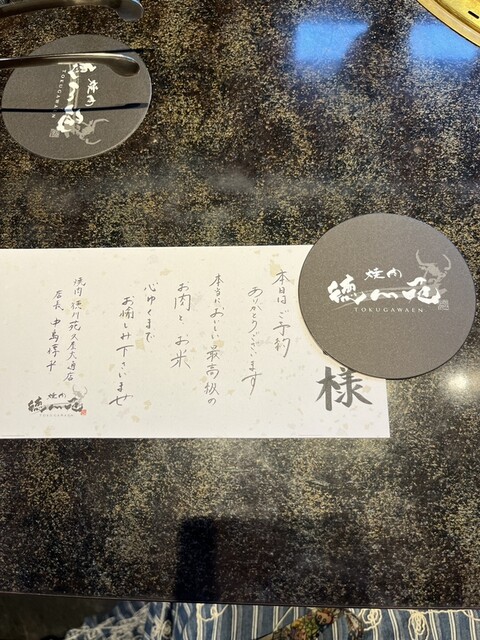 焼肉
徳川苑
TOKUGAWAEN
焼肉
徳川苑
TOKUGAWAEN
様
本日はご予約
ありがとうございます
本当においしい最高級の
お肉と、お米
心ゆくまで
お愉しみ下さいませ
焼肉 徳川苑 久屋大通店
店長 中島
焼肉
徳川苑
TOKUGAWAEN